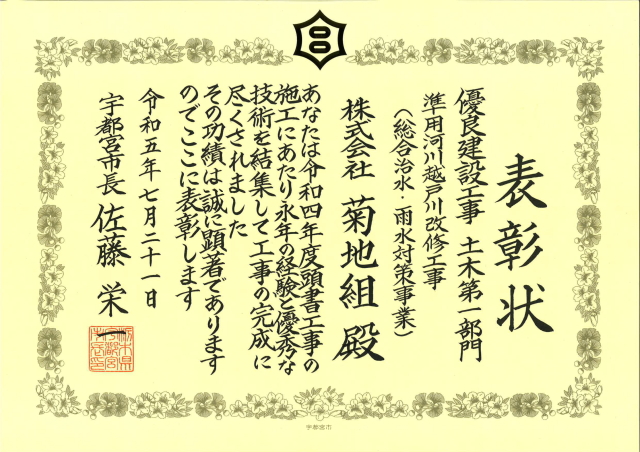 表彰状
優良建設工事 土木第一部門
準用河川越戸川改修工事
(総合治水・雨水対策事業)
株式会社 菊地組 殿
あなたは令和四年度頭書工事の
施工にあたり永年の経験と優秀な
技術を結集して工事の完成に
尽くされました
その功績は誠に顕著であります
のでここに表彰します
令和五年七月二十一日
宇都宮市長 佐藤栄一
宇都宮市